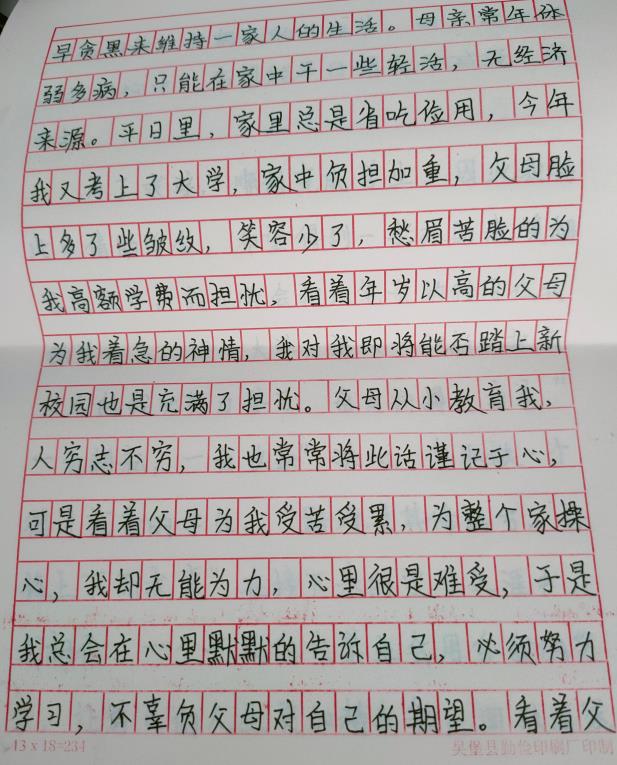 早贪黑来维持一家人的生活。母亲常年体
弱多病，只能在家中干一些轻活，无经济
来源。平日里，家里总是省吃俭用，今年
我又考上了大学，家中负担加重，父母脸
上多了些皱纹，笑容少了，愁眉苦脸的为
我高额学费而担忧，看着年岁以高的父母
为我着急的神情，我对我即将能否踏上新
校园也是充满了担忧。父母从小教育我，
人穷志不穷，我也常常将此话谨记于心，
可是看着父母为我受苦受累，为整个家操
心，我却无能为力，心里很是难受，于是
我总会在心里默默的告诉自己，必须努力
学习，不辜负父母对自己的期望。看着父
13×18=234 吴堡县勤俭印刷厂印制